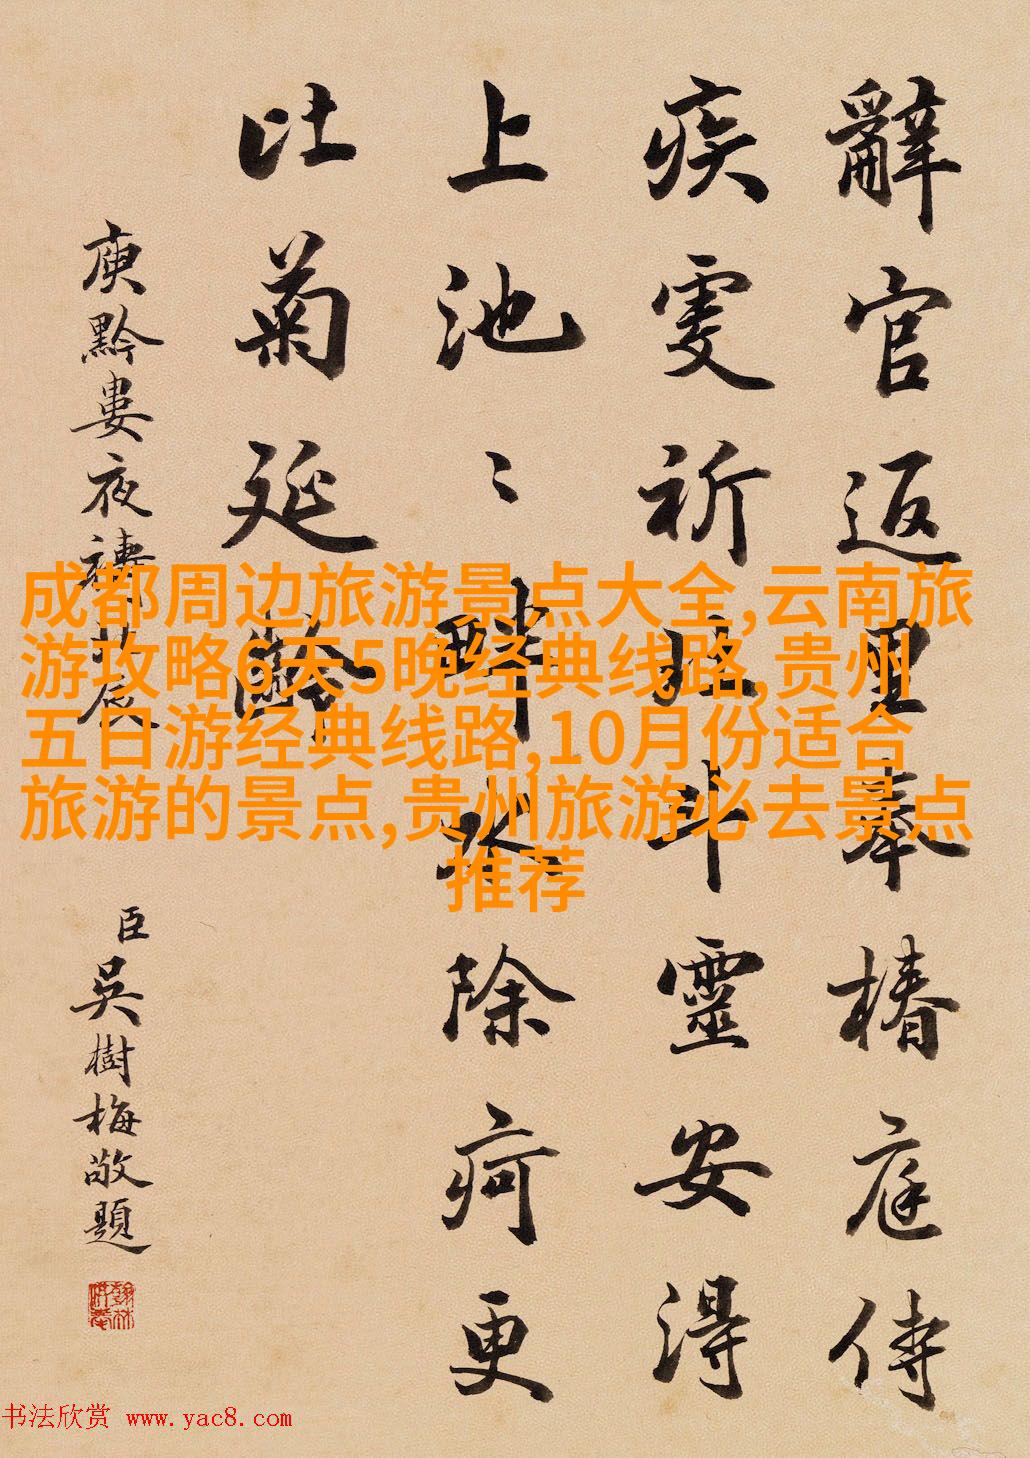 辭官返里奉椿庭侍
疾雯祈北斗靈安得
上池〻畔水除疴更
吐菊延齡
庾黔婁夜禱北辰
臣吳樹梅敬題
成都周边旅游景点大全,云南旅
游攻略6天5晚经典线路,贵州
五日游经典线路,10月份适合
旅游的景点,贵州旅游必去景点
推荐
书法欣赏 www.yac8.com